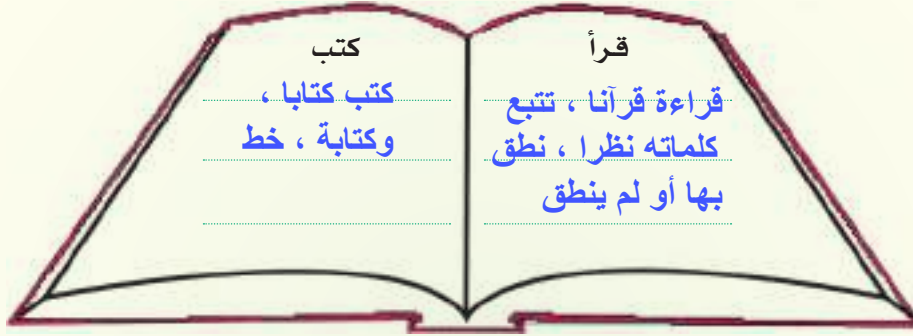 قرأ
قراءة قرآنا ، تتبع
كلماته نظرا ، نطق
بها أو لم ينطق
كتب
كتب كتابا ،
وكتابة ، خط